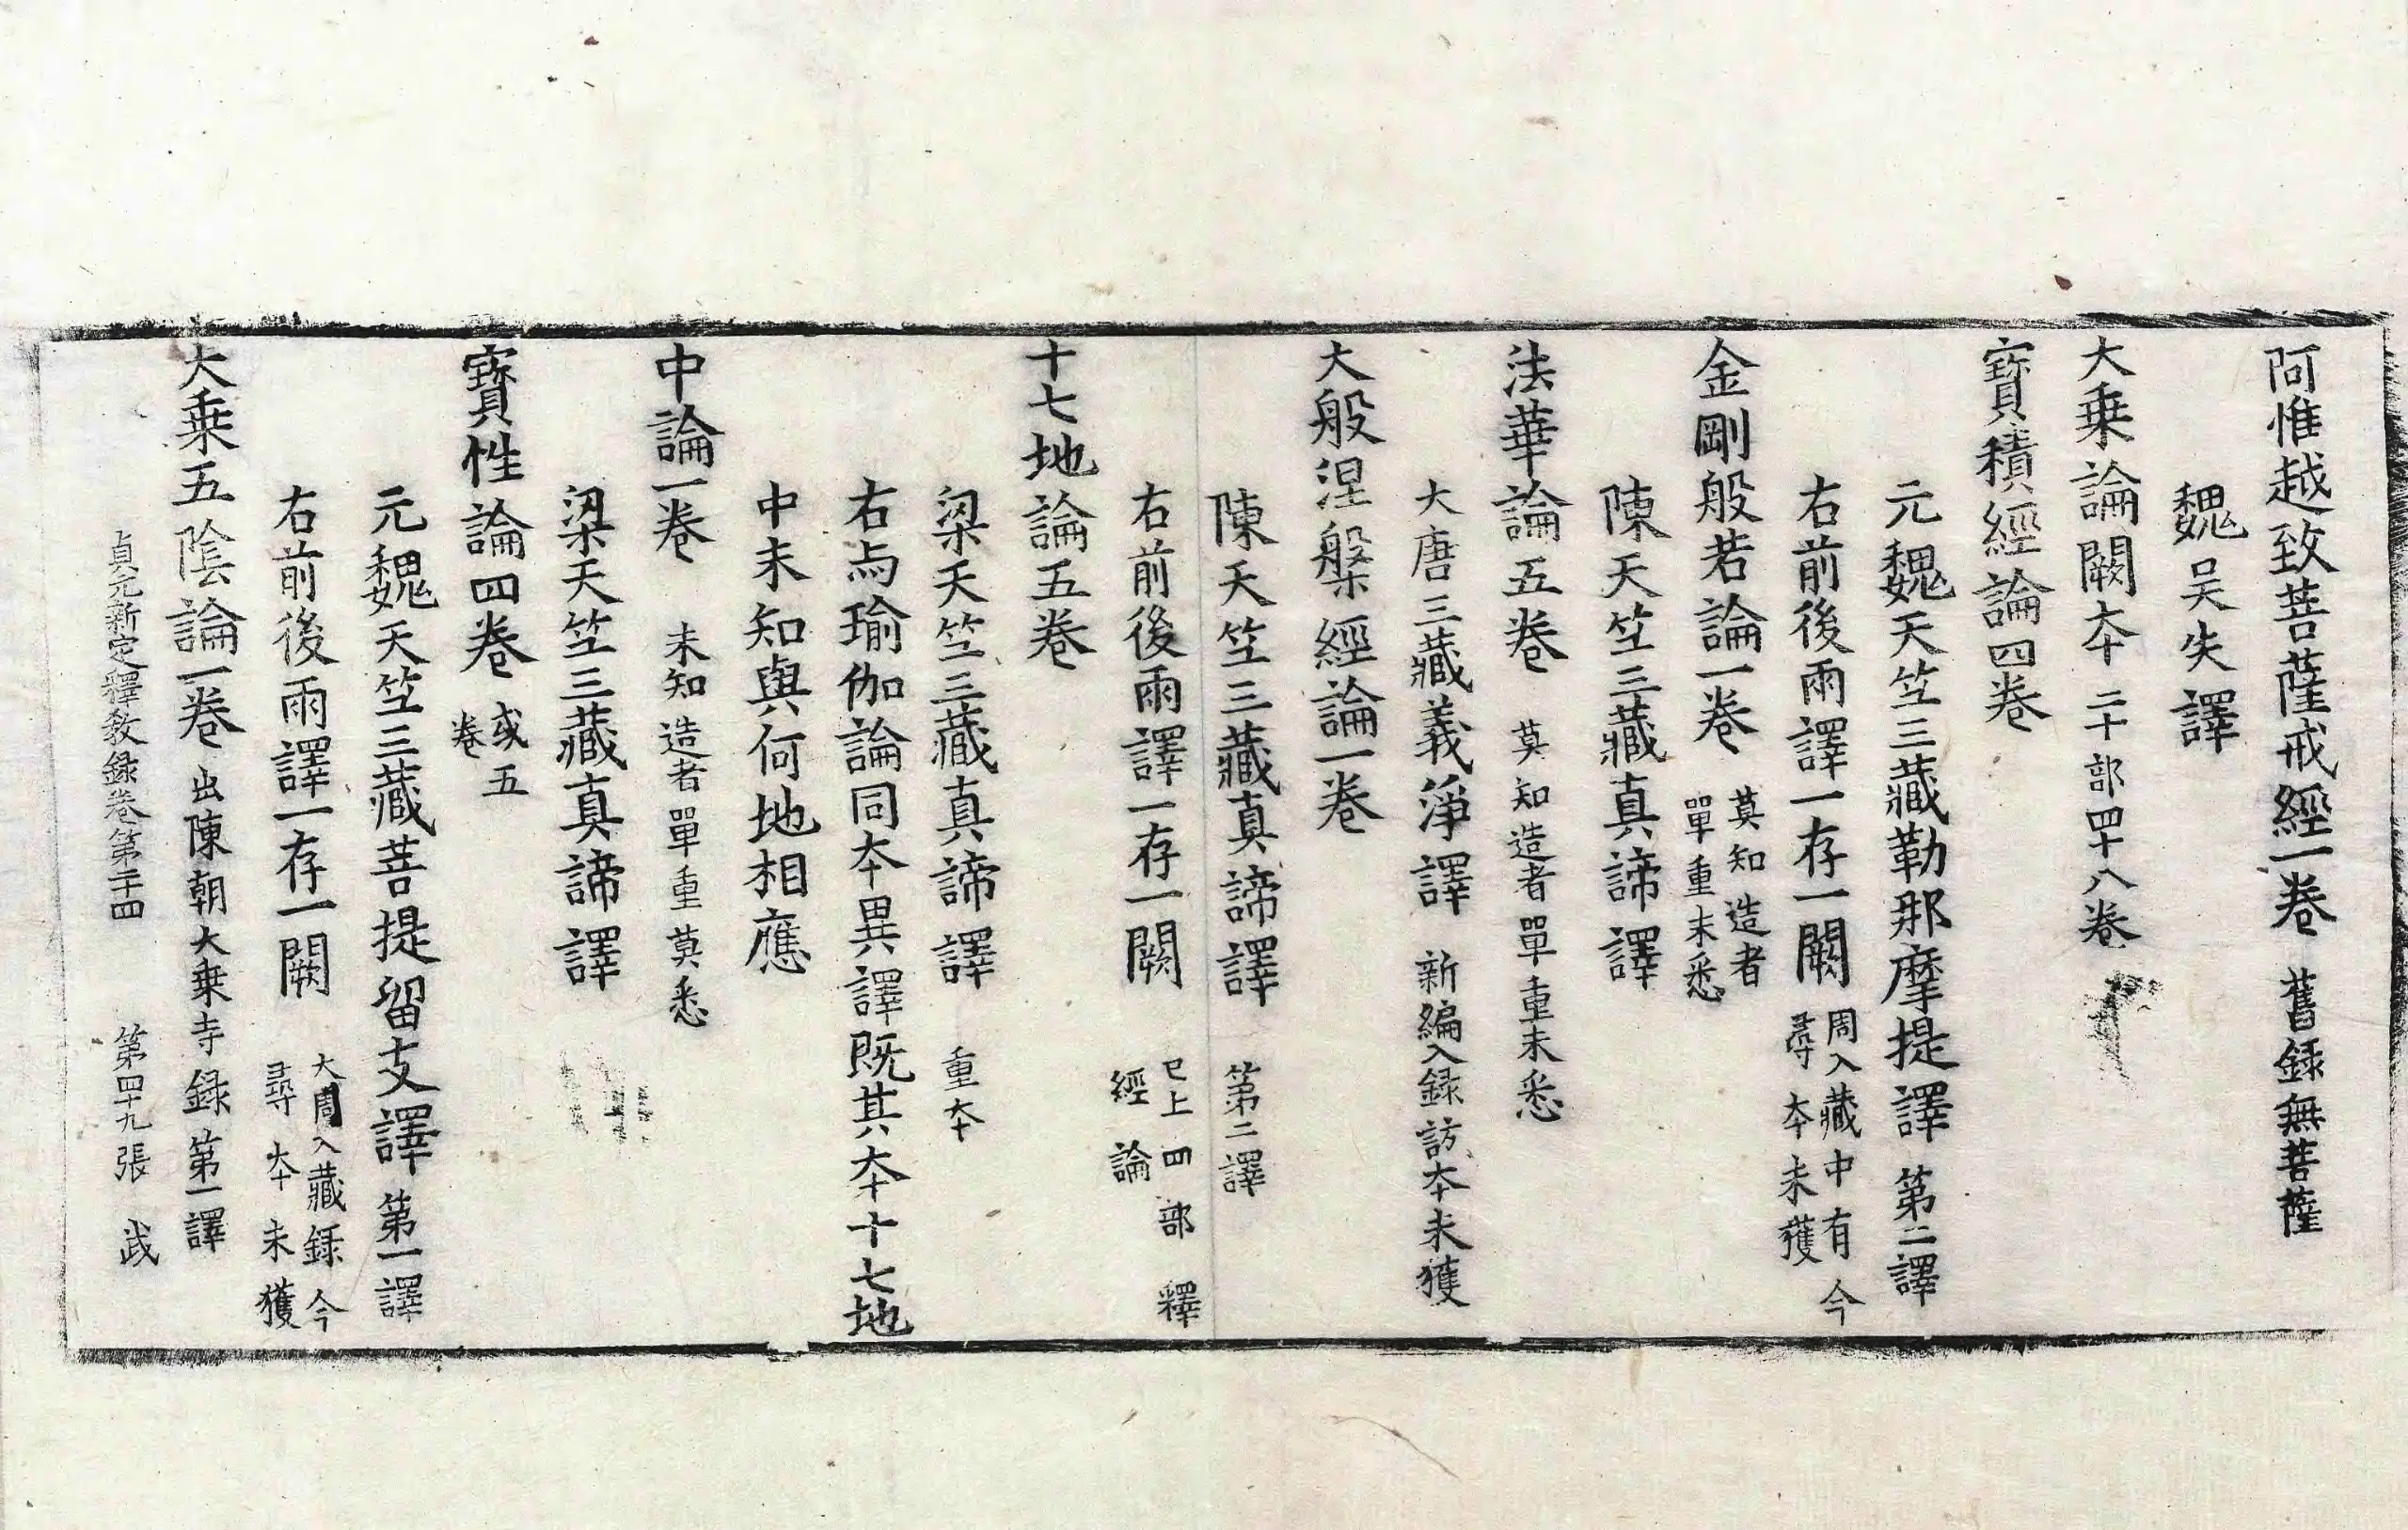 阿惟越致菩薩戒經一卷 舊録無菩薩
魏吴失譯
大乗論闕夲 二十部四十八卷
寶積經論四卷
元魏天竺三藏勒那摩提譯 第二譯
右前後兩譯一存一闕 周入藏中有今尋夲未獲
金剛般若論一卷 莫知造者單重未悉
陳天竺三藏真諦譯
法華論五卷 莫知造者單重未悉
大唐三藏義淨譯 新編入録訪夲未獲
大般涅槃經論一卷
陳天竺三藏真諦譯 第二譯
右前後兩譯一存一闕 已上四部釋經論
十七地論五卷
梁天竺三藏真諦譯 重夲
右与瑜伽論同夲異譯既其夲十七地
中未知與何地相應
中論一卷 未知造者單重莫悉
梁天竺三藏真諦譯
寶性論四卷 或五卷
元魏天竺三藏菩提留支譯 第一譯
右前後兩譯一存一闕 大周入藏録今尋夲未獲
大乗五隂論一卷 出陳朝大乗寺録第一譯
貞元新定釋教録卷第二十四 第四十九張 武